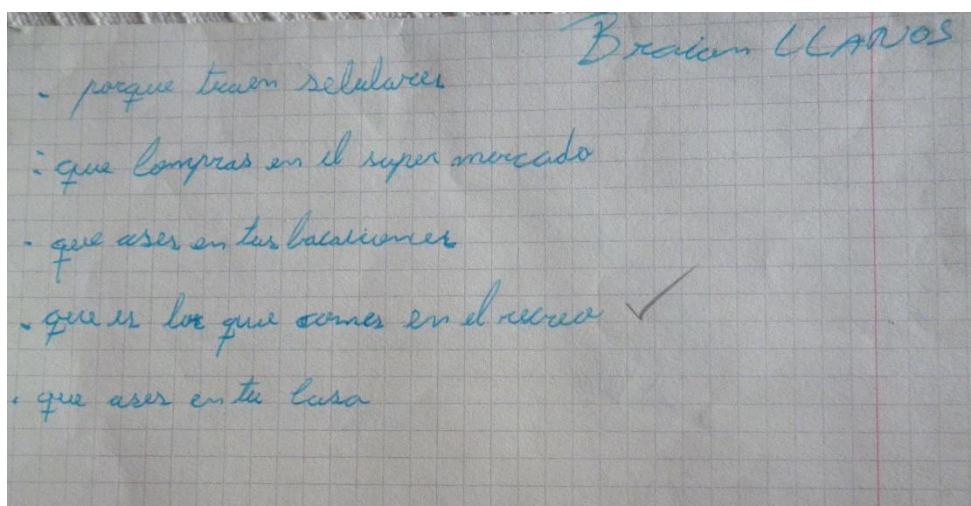 Braian LLANOS
- porque traen selulares
- que compras en el super mercado
- que ases en tus bacaciones
- que es lo que comes en el recreo ✓
- que ases en tu casa